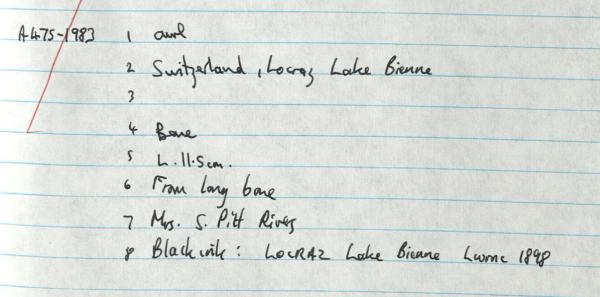 A475-1983 1 awl
2 Switzerland, Locraz Lake Bienne
3
4 Bone
5 L. 11.5cm.
6 From long bone
7 Mrs. S. Pitt Rivers
8 Black ink: LOCRAZ Lake Bienne 1898